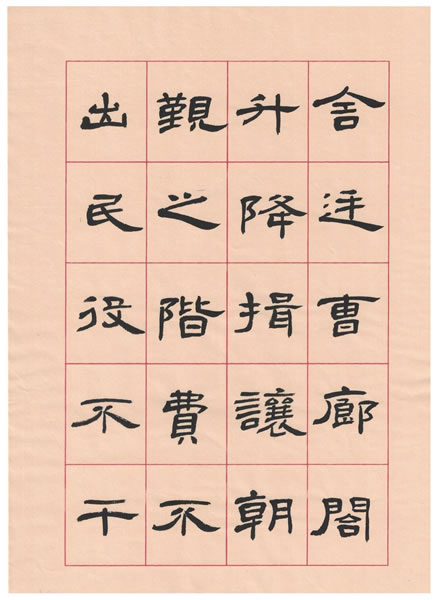 舍廷曹廊閣
升降揖讓朝
覲之階費不
出民役不干